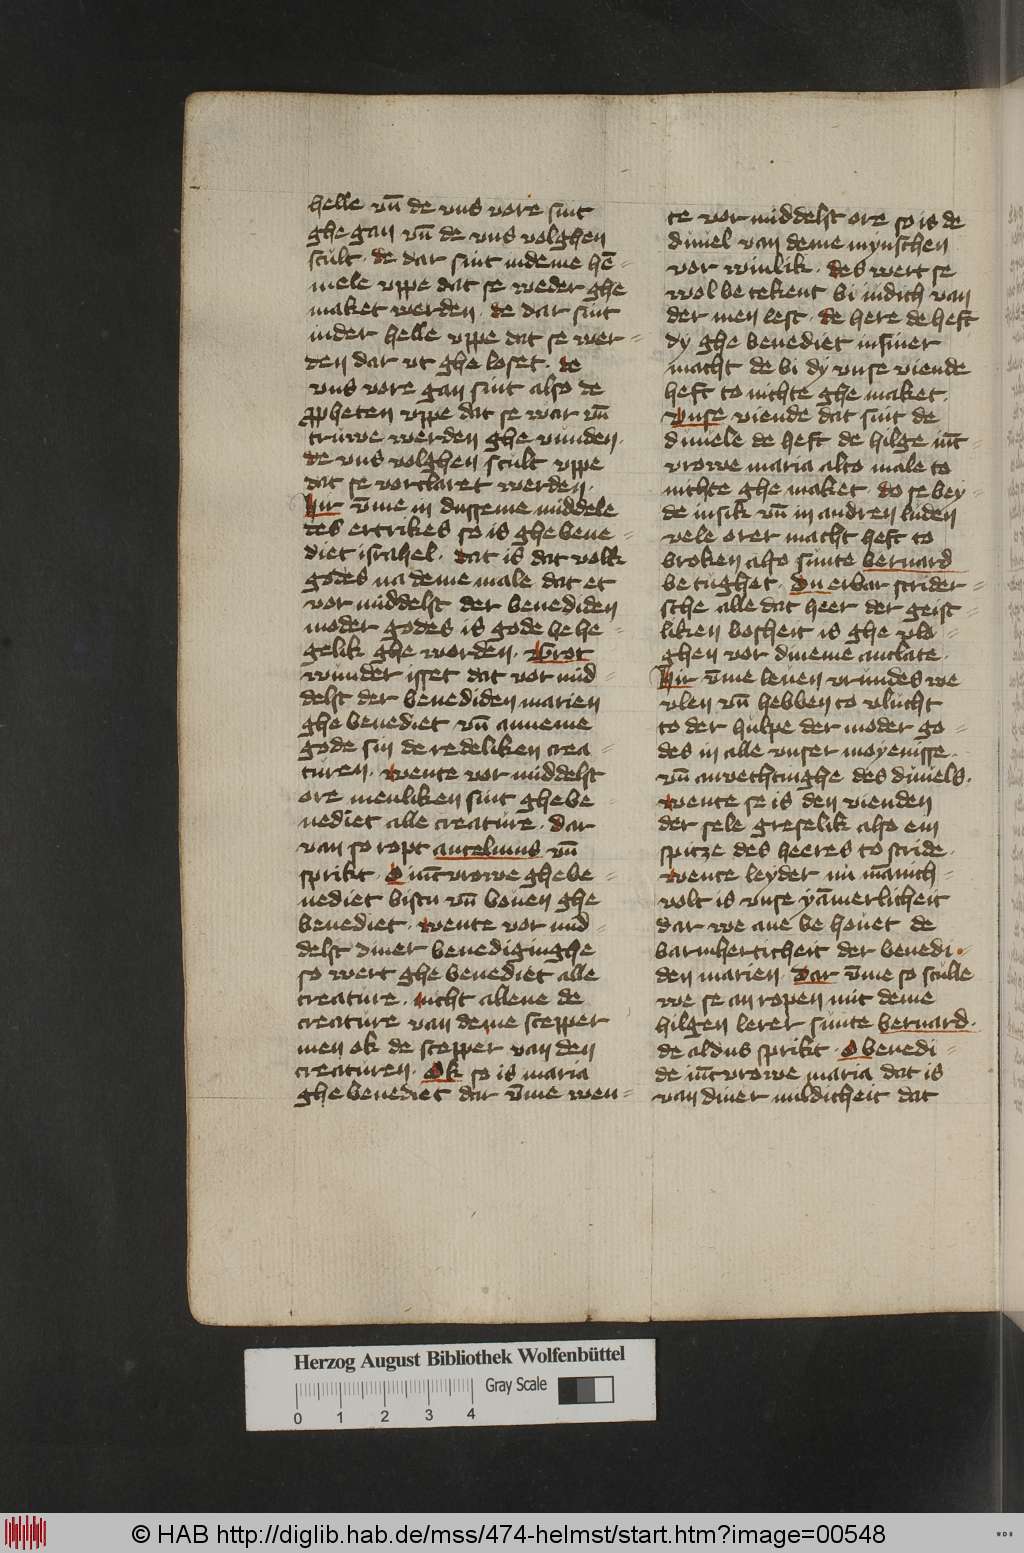 helle vn̄ de vns vore sint
ghe gan vn̄ de vns volghen
scult. de dar sint indeme hē-
mele vppe dat se weder ghe
maket werden. de dar sint
inder helle vppe dat se wer-
den dar vt ghe loset. de
vns vore gan sint also de
ꝓpheten vppe dat se war vn̄
truwe werden ghe vunden.
de vns volghen scult vppe
dat se vorclaret werden.
Hir v̄me in dusseme middele
des ertrikes so is ghebene-
diet israhel. dat is dat volk
godes na deme male dat et
vor middelst der benediden
moder godes is gode behe-
gelik ghe worden. Grot
wunder isset dat vor mid-
delst der benediden marien
ghe benediet vn̄ anneme
gode sin de redeliken crea-
turen. wente vor middelst
ore menliken sint ghebe-
nediet alle creature. dar
van so ropt ancelmus vn̄
sprikt. O iūcvrowe ghebe-
nediet bistu vn̄ boven ghe
benediet. wente vor mid-
delst diner benediginghe
so wert ghe benediet alle
creature. nicht allene de
creature van deme scepper
men ok de scepper van den
creaturen. Ok so is maria
ghe benediet dar v̄me wen-
te vor middelst ore so is de
duuel van deme mynschen
vor winlik. des wert se
wol be tekent bi iudich van
der men lest. de here de heft
dy ghe benediet insiner
macht de bi dy vnse viende
heft to nichte ghe maket.
Vnse viende dat sint de
duuele de heft de hilge iūc-
vrowe maria alto male to
nichte ghe maket. do se bey-
de insik vn̄ in andren luden
vele orer macht heft to
broken also sunte bernard
be tughet. Du erbar strider-
sche alle dat heer der geist-
liken bosheit is ghe vlo-
ghen vor dineme anclate.
Hir v̄me leuen vrundes we
vlen vn̄ hebben to vlucht
to der hulpe der moder go-
des in alle vnser moyenisse.
vn̄ anvechtinghe des duuels.
wente se is den vienden
der sele greselik also ein
spitze des heeres to stride.
wente leyder nu mānich-
volt is vnse yāmerlicheit
dar we ane be houet de
barmherticheit der benedi-
den marien. Dar v̄me so sculle
we se an ropen mit deme
hilgen lerer sunte bernard.
de aldus sprikt. O benedi-
de iūcvrowe maria dat is
van diner mildicheit dat
Herzog August Bibliothek Wolfenbüttel
Gray Scale
0 1 2 3 4
© HAB http://diglib.hab.de/mss/474-helmst/start.htm?image=00548